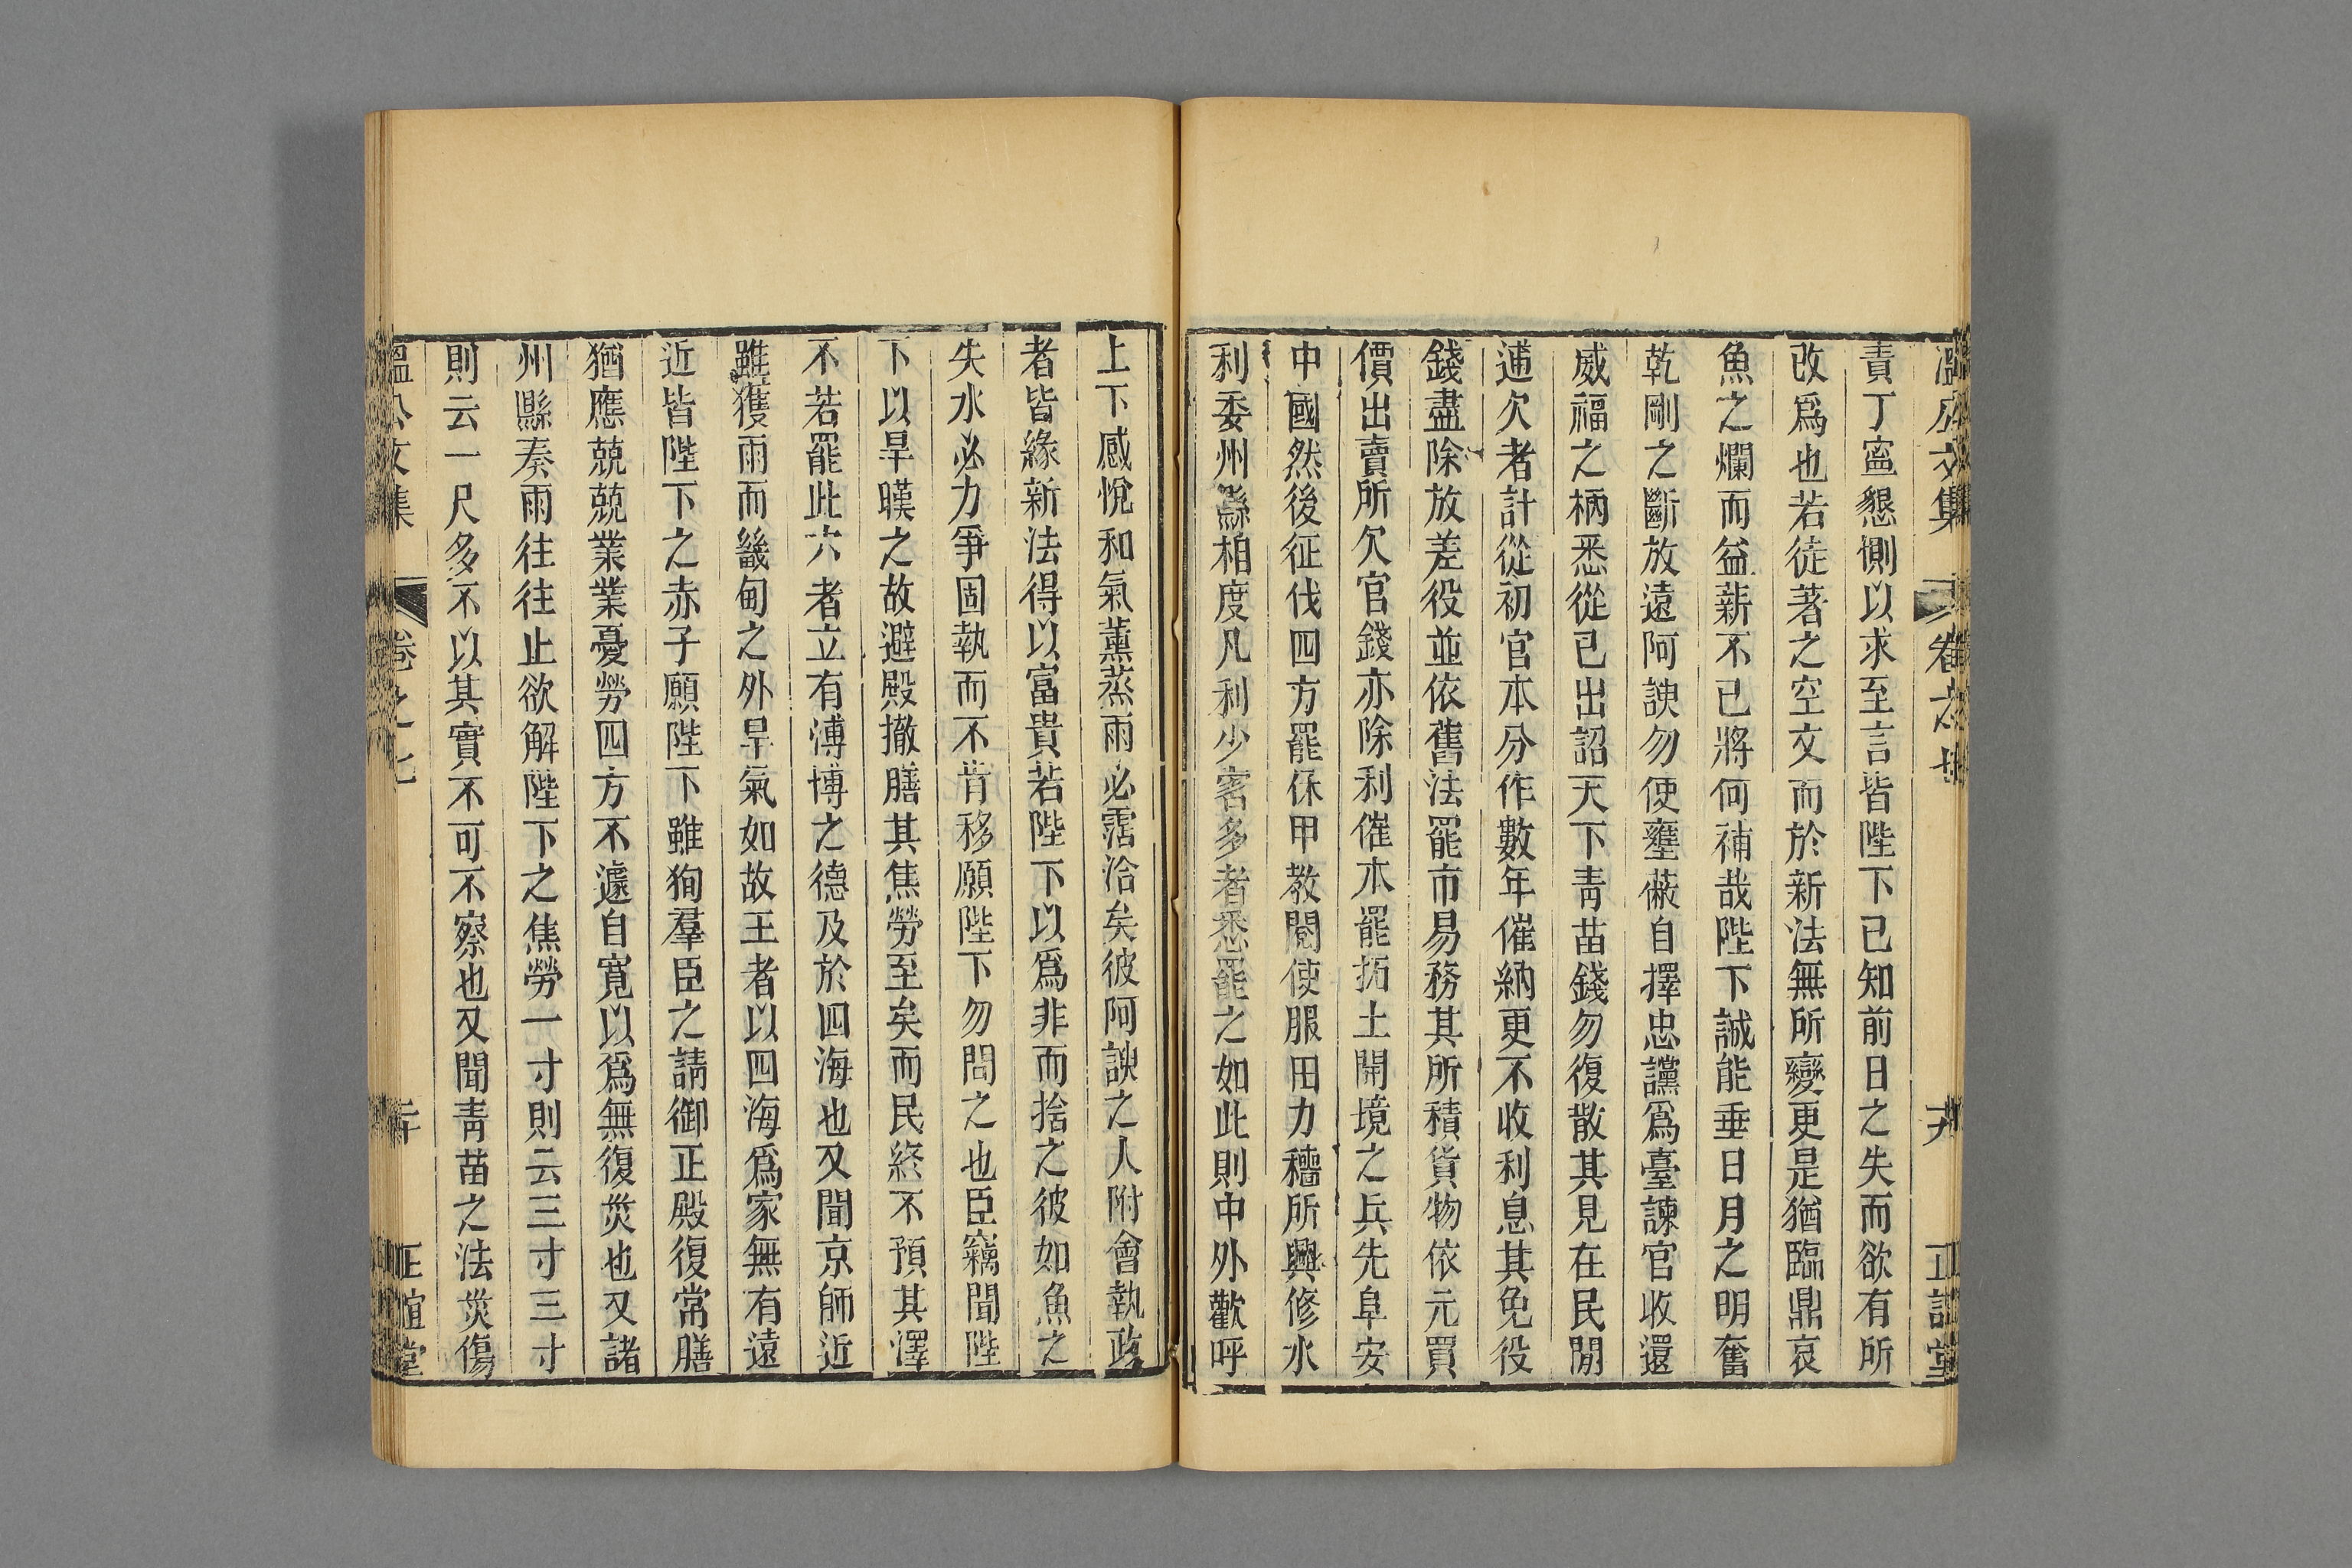 溫公文集 卷之七 正誼堂
責丁寧懇惻以求至言皆陛下已知前日之失而欲有所
改爲也若徒著之空文而於新法無所變更是猶臨鼎哀
魚之爛而益薪不已將何補哉陛下誠能垂日月之明奮
乾剛之斷放遠阿諛勿使壅蔽自擇忠讜爲臺諫官收還
威福之柄悉從已出詔天下靑苗錢勿復散其見在民閒
逋欠者計從初官本分作數年催納更不收利息其免役
錢盡除放差役並依舊法罷市易務其所積貨物依元買
價出賣所欠官錢亦除利催本罷拓土開境之兵先阜安
中國然後征伐四方罷保甲教閱使服田力穡所興修水
利委州縣相度凡利少害多者悉罷之如此則中外歡呼
上下感悅和氣薰蒸雨必霑洽矣彼阿諛之人附會執政
者皆緣新法得以富貴若陛下以爲非而捨之彼如魚之
失水必力爭固執而不肯移願陛下勿問之也臣竊聞陛
下以旱暵之故避殿撤膳其焦勞至矣而民終不預其澤
不若罷此六者立有溥博之德及於四海也又聞京師近
雖獲雨而畿甸之外旱氣如故王者以四海爲家無有遠
近皆陛下之赤子願陛下雖狥羣臣之請御正殿復常膳
猶應兢兢業業憂勞四方不遽自寬以爲無復災也又諸
州縣奏雨往往止欲解陛下之焦勞一寸則云三寸三寸
則云一尺多不以其實不可不察也又聞靑苗之法災傷
溫公文集 卷之七 二十 正誼堂